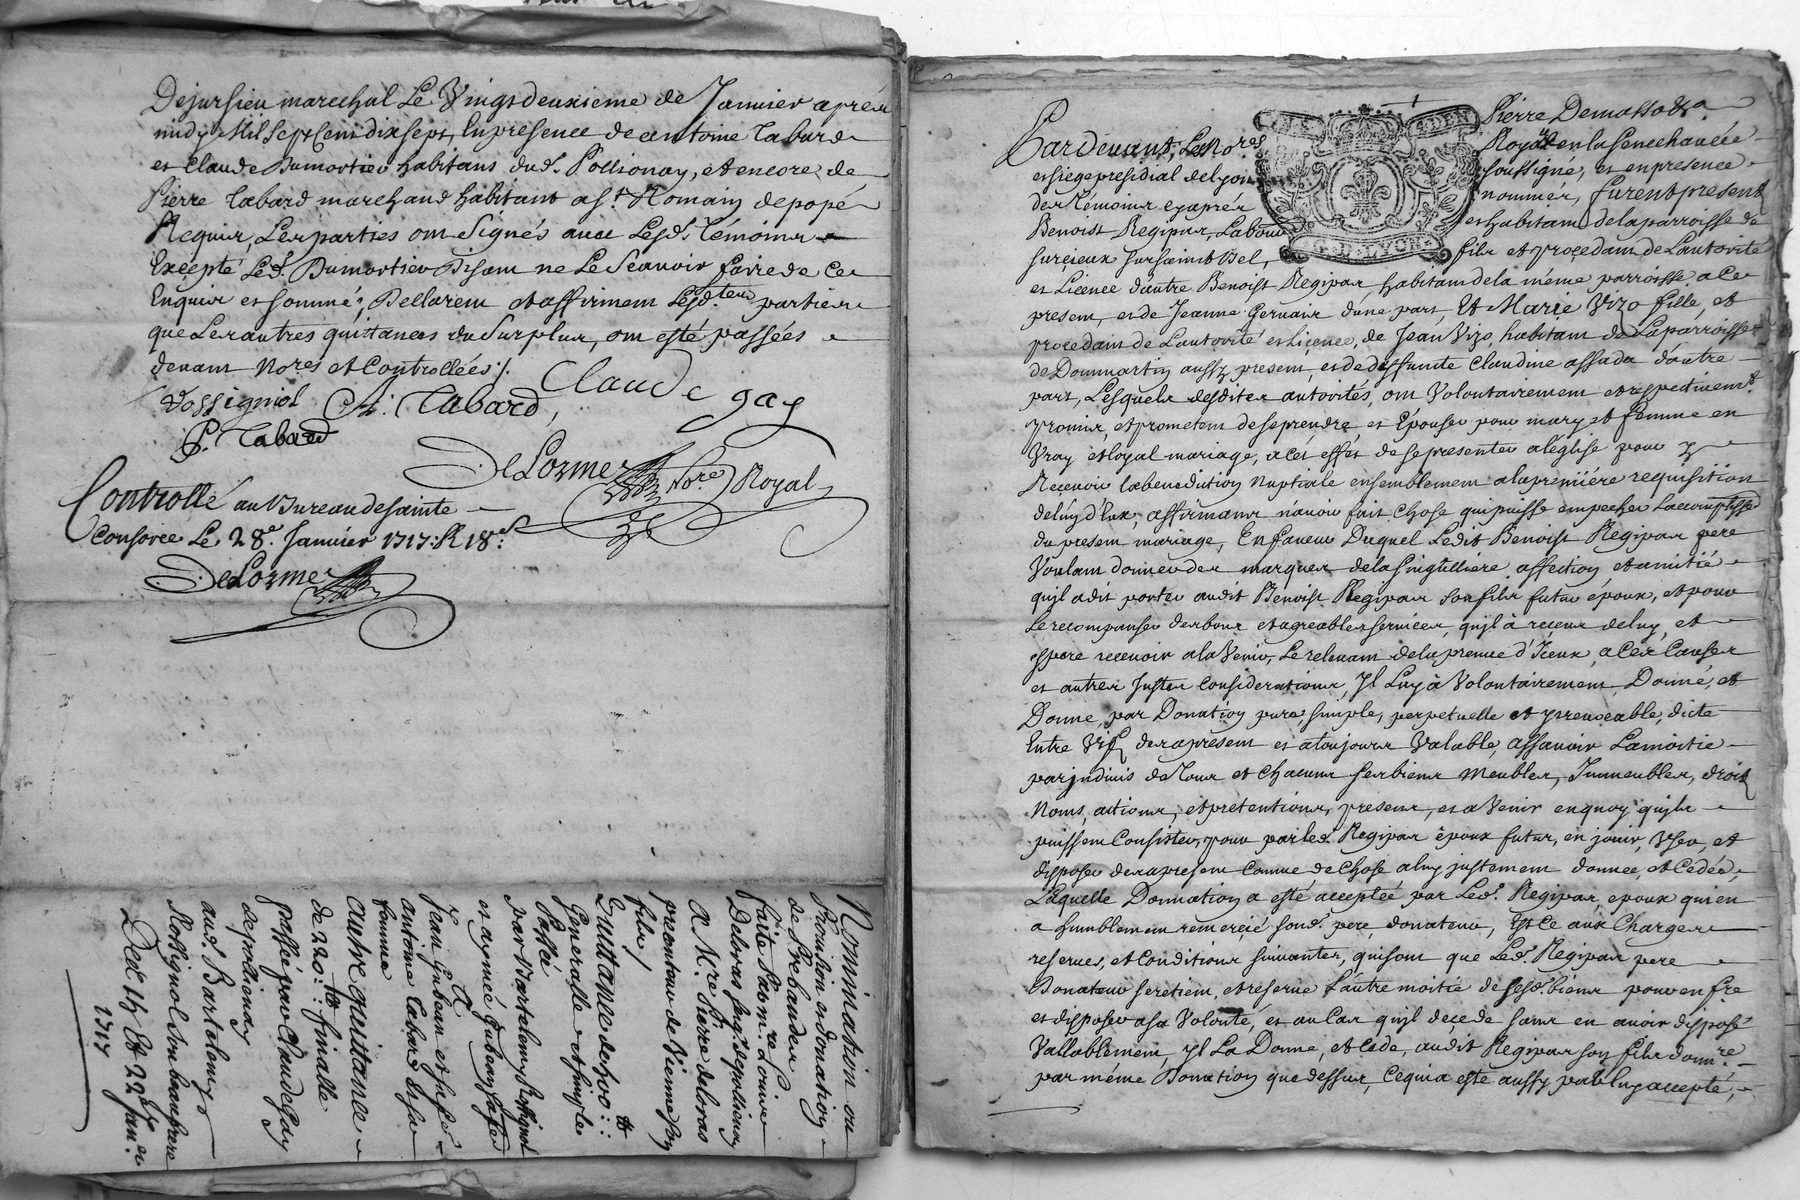 Dejursieu marechal Le Vingtdeuxieme de Janvier aprés
midy Mil Sept Cent dix sept, En presence de antoine Tabard
et Claude Dumortier habitans dud. Pollionay, et encore de
Pierre Tabard marchand habitant a St. Romain de popé
Requis, Les parties ont Signés avec Lesd. témoins
Excepté Led. Dumortier Disant ne Le Scavoir faire de Ce
Enquis et sommé; Declarent et affirment Lesd. parties
que Les autres quittances du Surplus, ont esté passées
devant Nores et Controllées
Rossigniol A: Tabard, Claude gay
P. Tabard
DeLorme Nore Royal
Controllé au Bureau de sainte
Consorce Le 28e. Janvier 1717: R 18s.
DeLorme
Nomination ou
Provision et donation
de Prebandes
faite par mre Louis
Deloras seigr. de pollionay
a Mre Pierre deloras
precenteur de Vienne son
fils/
Quittance de
Generalle et
Passée
par Bartelemy Rossigniol
et aymée
Jean Guban et
antoine Tabard et sa
famme
autre quittance
de 220: finalle
passée par Claude Gay
de pollionay
aud. Bartelemy
Rossigniol son beaufrere
Des 15 Et 22 Janr.
1717
Pardevant, Le Nore Pierre Demassod
Royal en la Senechaucée
et siege presidial de Lyon soussigné, et en presence
des témoins cy aprés nommés, furent present
Benoist Regipas, Laboureur et habitant de la parroisse de
surcieux sur saint Bel, fils et procedant de L'autorité
et Licence d'autre Benoist Regipas habitant de la méme parroisse a Ce
present, et de Jeanne Gervais d'une part, Et Marie Vizo fille, et
procedant de L'autorité et Licence, de Jean Vizo, habitant de La parroisse
de Dommartin aussy present, et de deffunte Claudine assada d'autre
part, Lesquels desdites autorités, ont Volontairement et respectivemt.
promis, et prometent de se prendre et Épouser pour mary et femme en
Vray et loyal mariage, a cet effet de se presenter a l'église pour y
Recevoir la benediction Nuptiale ensemblement a la premiére requisition
de luy d'Eux, affirmans n'avoir fait Chose qui puisse empecher L'accomplisst
du present mariage, En faveur Duquel Ledit Benoist Regipas pere
Voulant donner des marques de la singulliére affection et amitié
qu'il a dit porter audit Benoist Regipas son fils futur époux, et pour
Le recompenser des bons et agreables services, qu'jl à receus de luy, et
espere recevoir a la Venir, Le relevant de la preuve d'Jceux, a Ces Causes
et autres Justes Considerations, Jl Luy à Volontairement, Donné, et
Donne, par Donation pure, simple, perpetuelle et yrrevocable, dicte
Entre Vifs des a present et a toujours Valable, assavoir La moitié
par jndivis de Tous et Chacuns ses biens Meubles, Jmmeubles, droits
Noms, actions, et pretentions, presens, et a Venir en quoy qu'jls
puissent Consister, pour par led. Regipas époux futur, en jouir, Vser, et
disposer des a present Comme de Chose a luy justement donnée, et Cédée,
Laquelle Donnation a esté acceptée par Led. Regipas, epoux qui en
a humblement remercié sond. pere, donateur, Est Ce aux Charges
reserves, et Conditions suivantes, qui sont que Led. Regipas pere
Donateur se retient, et reserve L'autre moitié de sesd. biens pour en fre
et disposer a sa Volonté, et au Cas qu'jl decede sans en avoir disposé
Vallablement, Jl La Donne, et Cede, audit Regipas son fils donnre
par méme Donation que dessus, Ce qui a esté aussy par luy accepté,